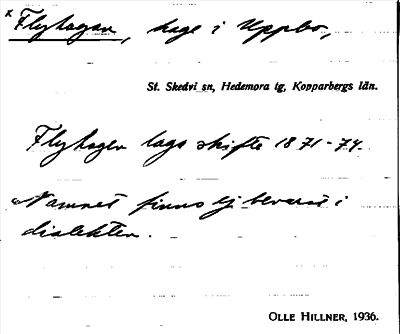 × Flyhagan, hage i Uppbo,
St. Skedvi sn, Hedemora tg, Kopparbergs län.
Flyhagen laga skifte 1871-74.
Namnet finns ej bevarat i
dialekten.
OLLE HILLNER, 1936.